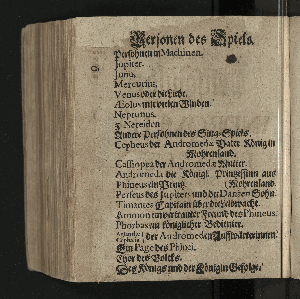 Personen des Spiels.
Persohnen in Machinen.
Jupiter.
Juno.
Mercurius.
Venus oder die Liebe.
Æolus mit vielen Winden.
Neptunus.
3. Nereiden.
Andere Persohnen des Sing-Spiels.
Cepheus der Andromedæ Vater König in
Mohrenland.
Cassiopea der Andromedæ Mutter.
Andromeda die Königl. Printzessin aus
Phineus ein Printz. (Mohrenland.
Perseus des Jupiters und der Danaen Sohn.
Timantes Capitain über die Leibwacht.
Ammon ein vertrauter Freund des Phineus.
Phorbas ein königlicher Bedienter.
der Andromeden Auffwärterinnen.
Ein Page des Phinei.
Chor des Volcks.
Des Königs und der Königin Gefolge.